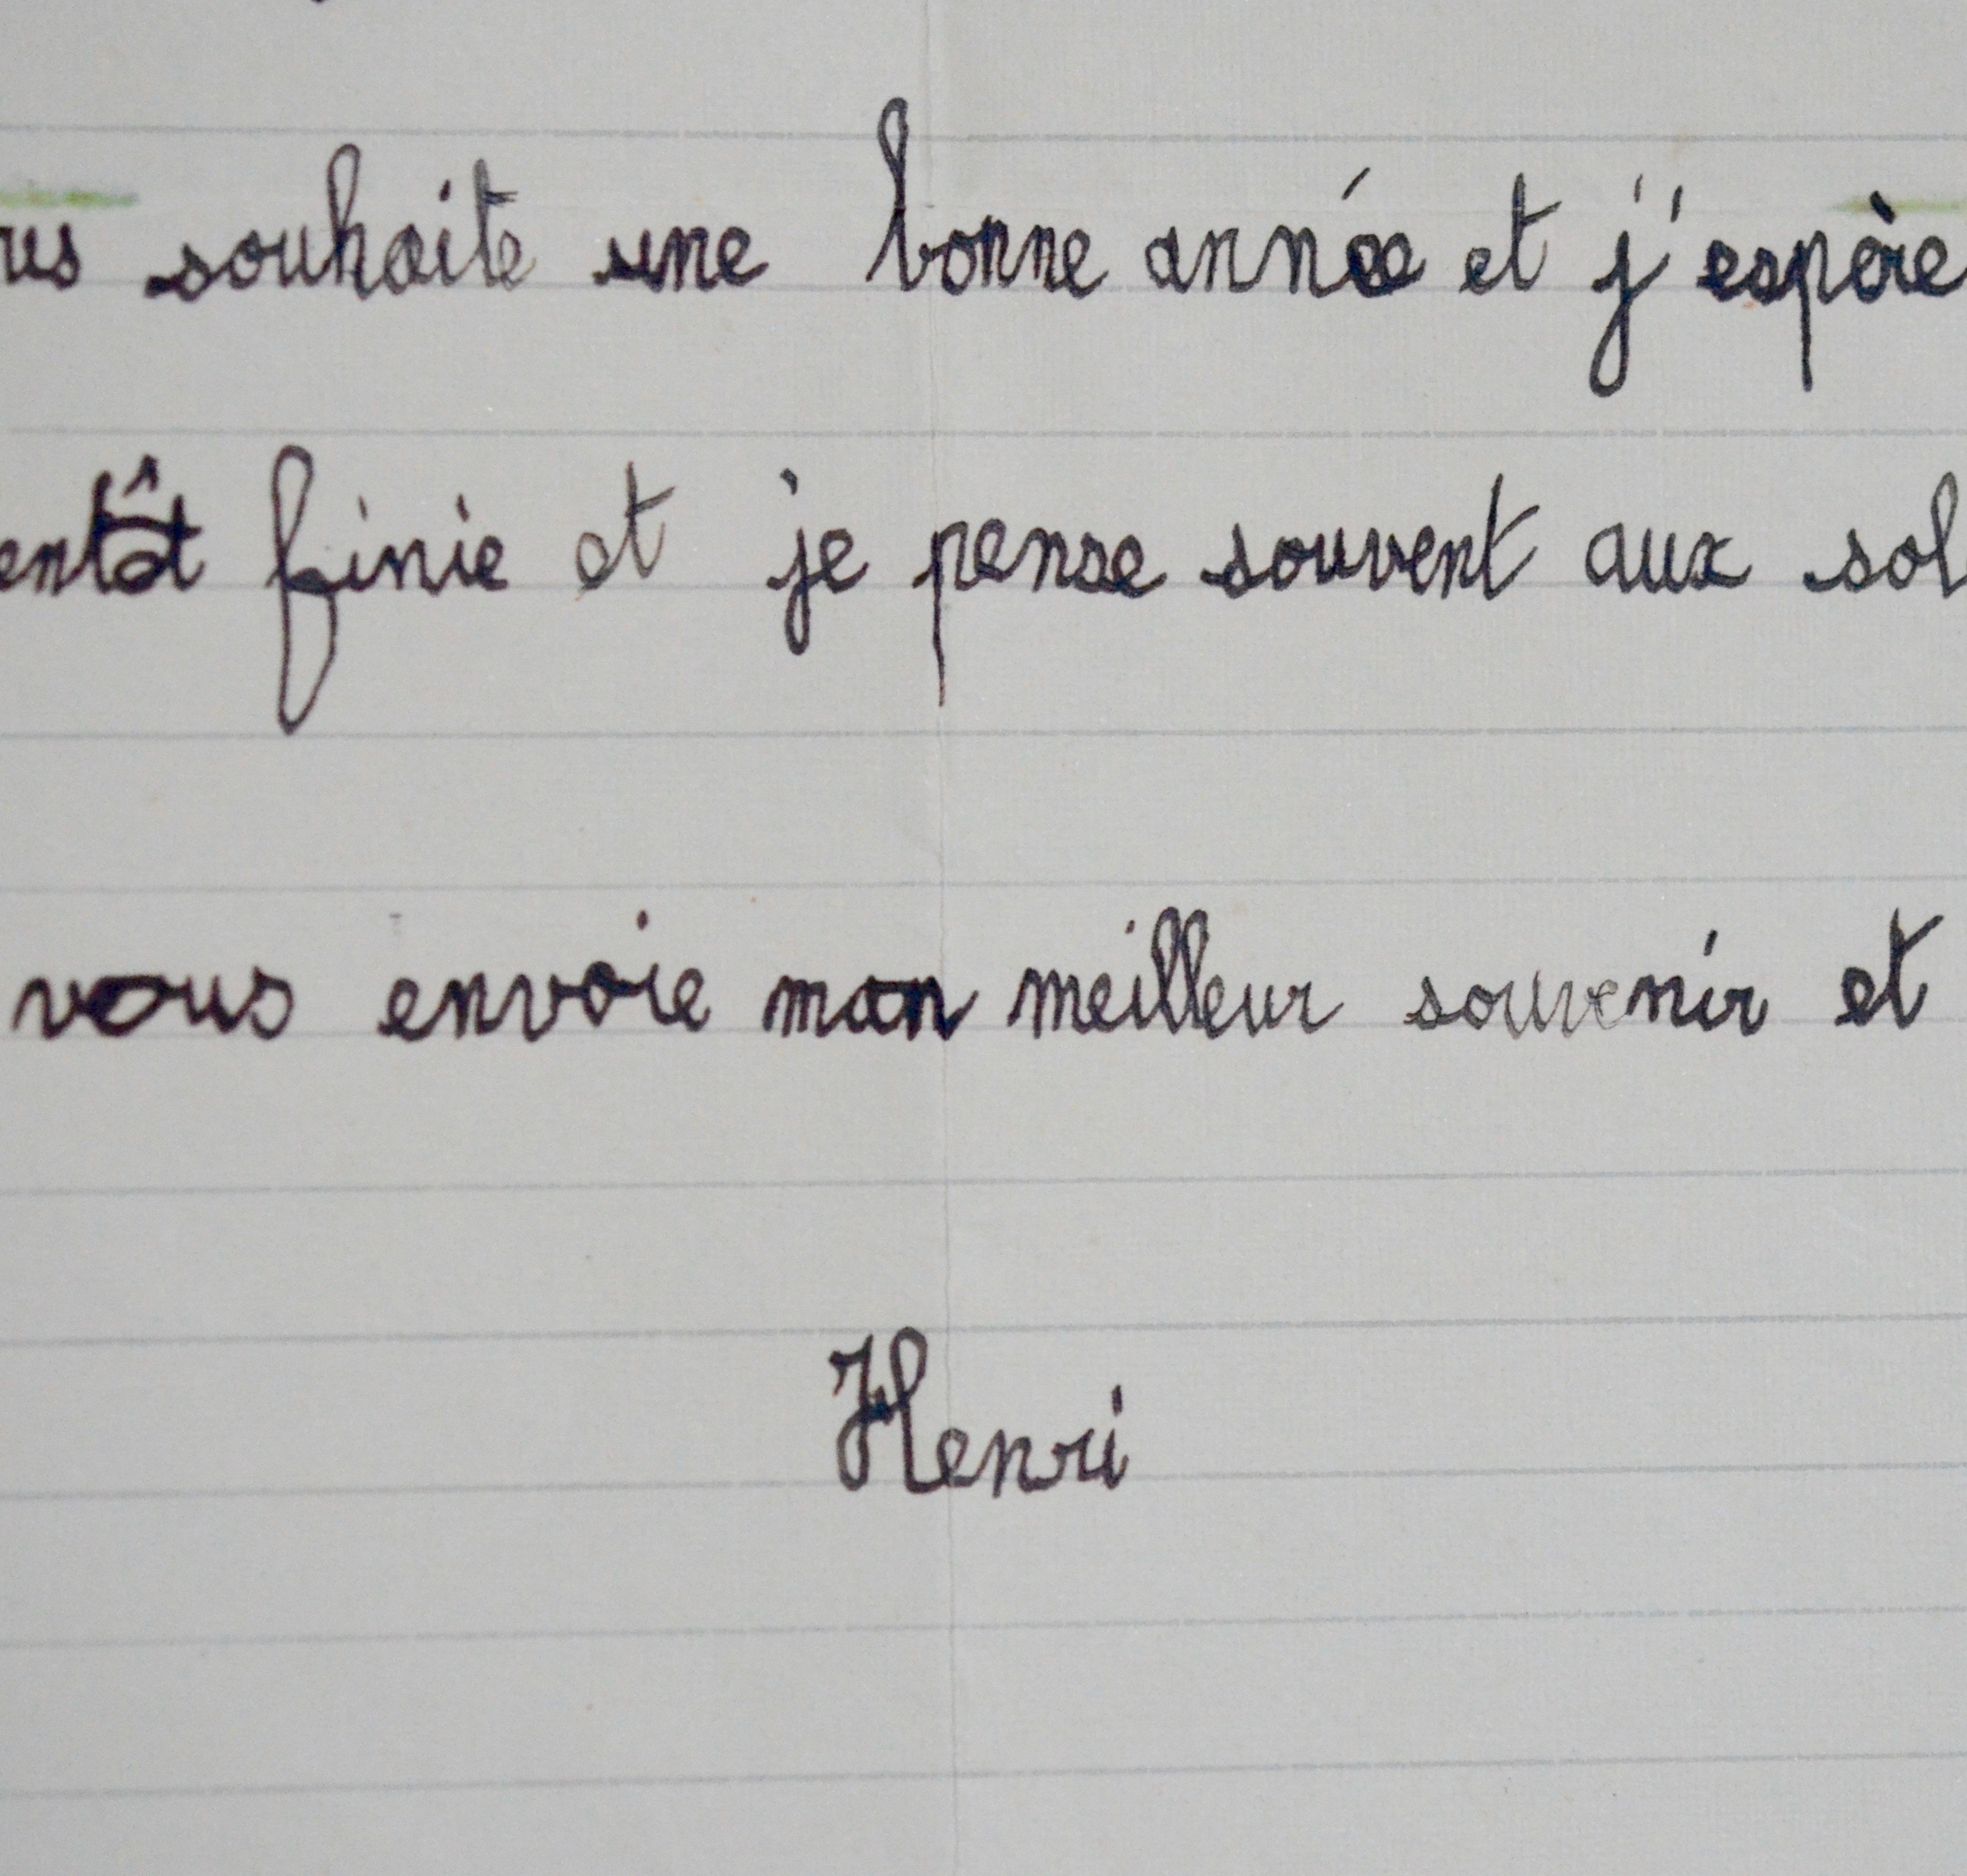 us souhaite une bonne année et j'espère
entôt finie et je pense souvent aux sol
vous envoie mon meilleur souvenir et
Henri